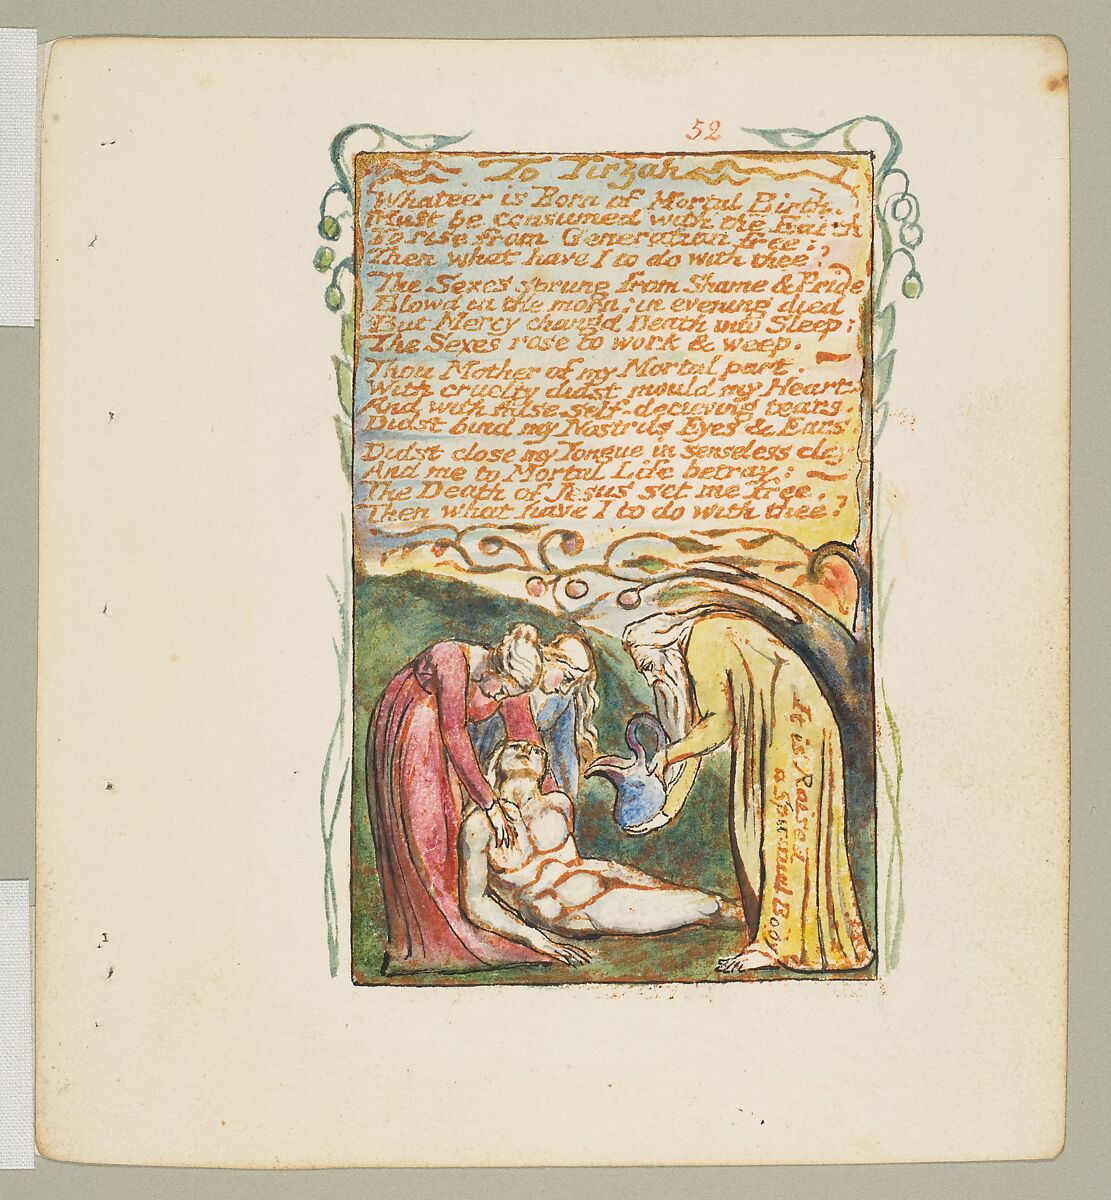 52
To Tirzah
Whateer is Born of Mortal Birth.
Must be consumed with the Earth
To rise from Generation free:
Then what have I to do with thee?
The Sexes sprung from Shame & Pride
Blowd in the morn; in evening died
But Mercy changd Death into Sleep;
The Sexes rose to work & weep.
Thou Mother of my Mortal part.
With cruelty didst mould my Heart.
And with false self-decieving tears.
Didst bind my Nostrils Eyes & Ears.
Didst close my Tongue in senseless clay
And me to Mortal Life betray:
The Death of Jesus set me free.
Then what have I to do with thee?
It is Raised
a Spiritual Body